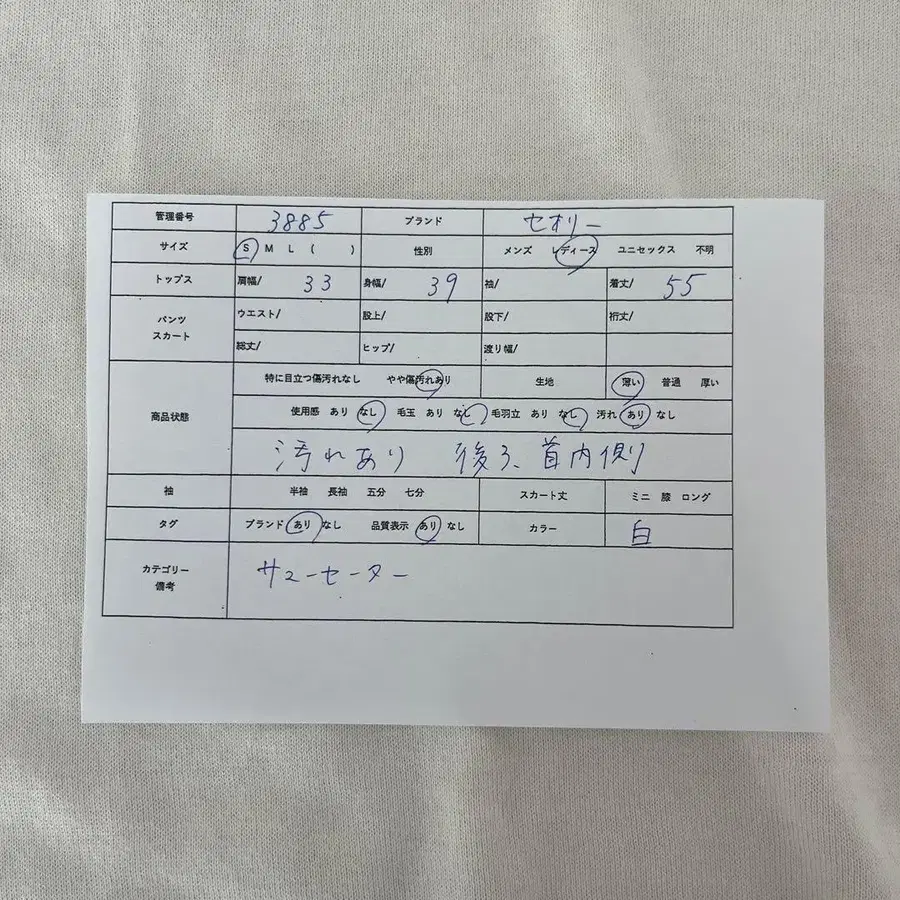 管理番号 3885 ブランド セオリー
サイズ S M L ( ) 性別 メンズ レディース ユニセックス 不明
トップス 肩幅/ 33 身幅/ 39 袖/ 着丈/ 55
パンツ ウエスト/ 股上/ 股下/ 裄丈/
スカート 総丈/ ヒップ/ 渡り幅/
特に目立つ傷汚れなし やや傷汚れあり 生地 薄い 普通 厚い
商品状態 使用感 あり なし 毛玉 あり なし 毛羽立 あり なし 汚れ あり なし
汚れあり 後ろ、首内側
袖 半袖 長袖 五分 七分 スカート丈 ミニ 膝 ロング
タグ ブランド あり なし 品質表示 あり なし カラー 白
カテゴリー サマーセーター
備考